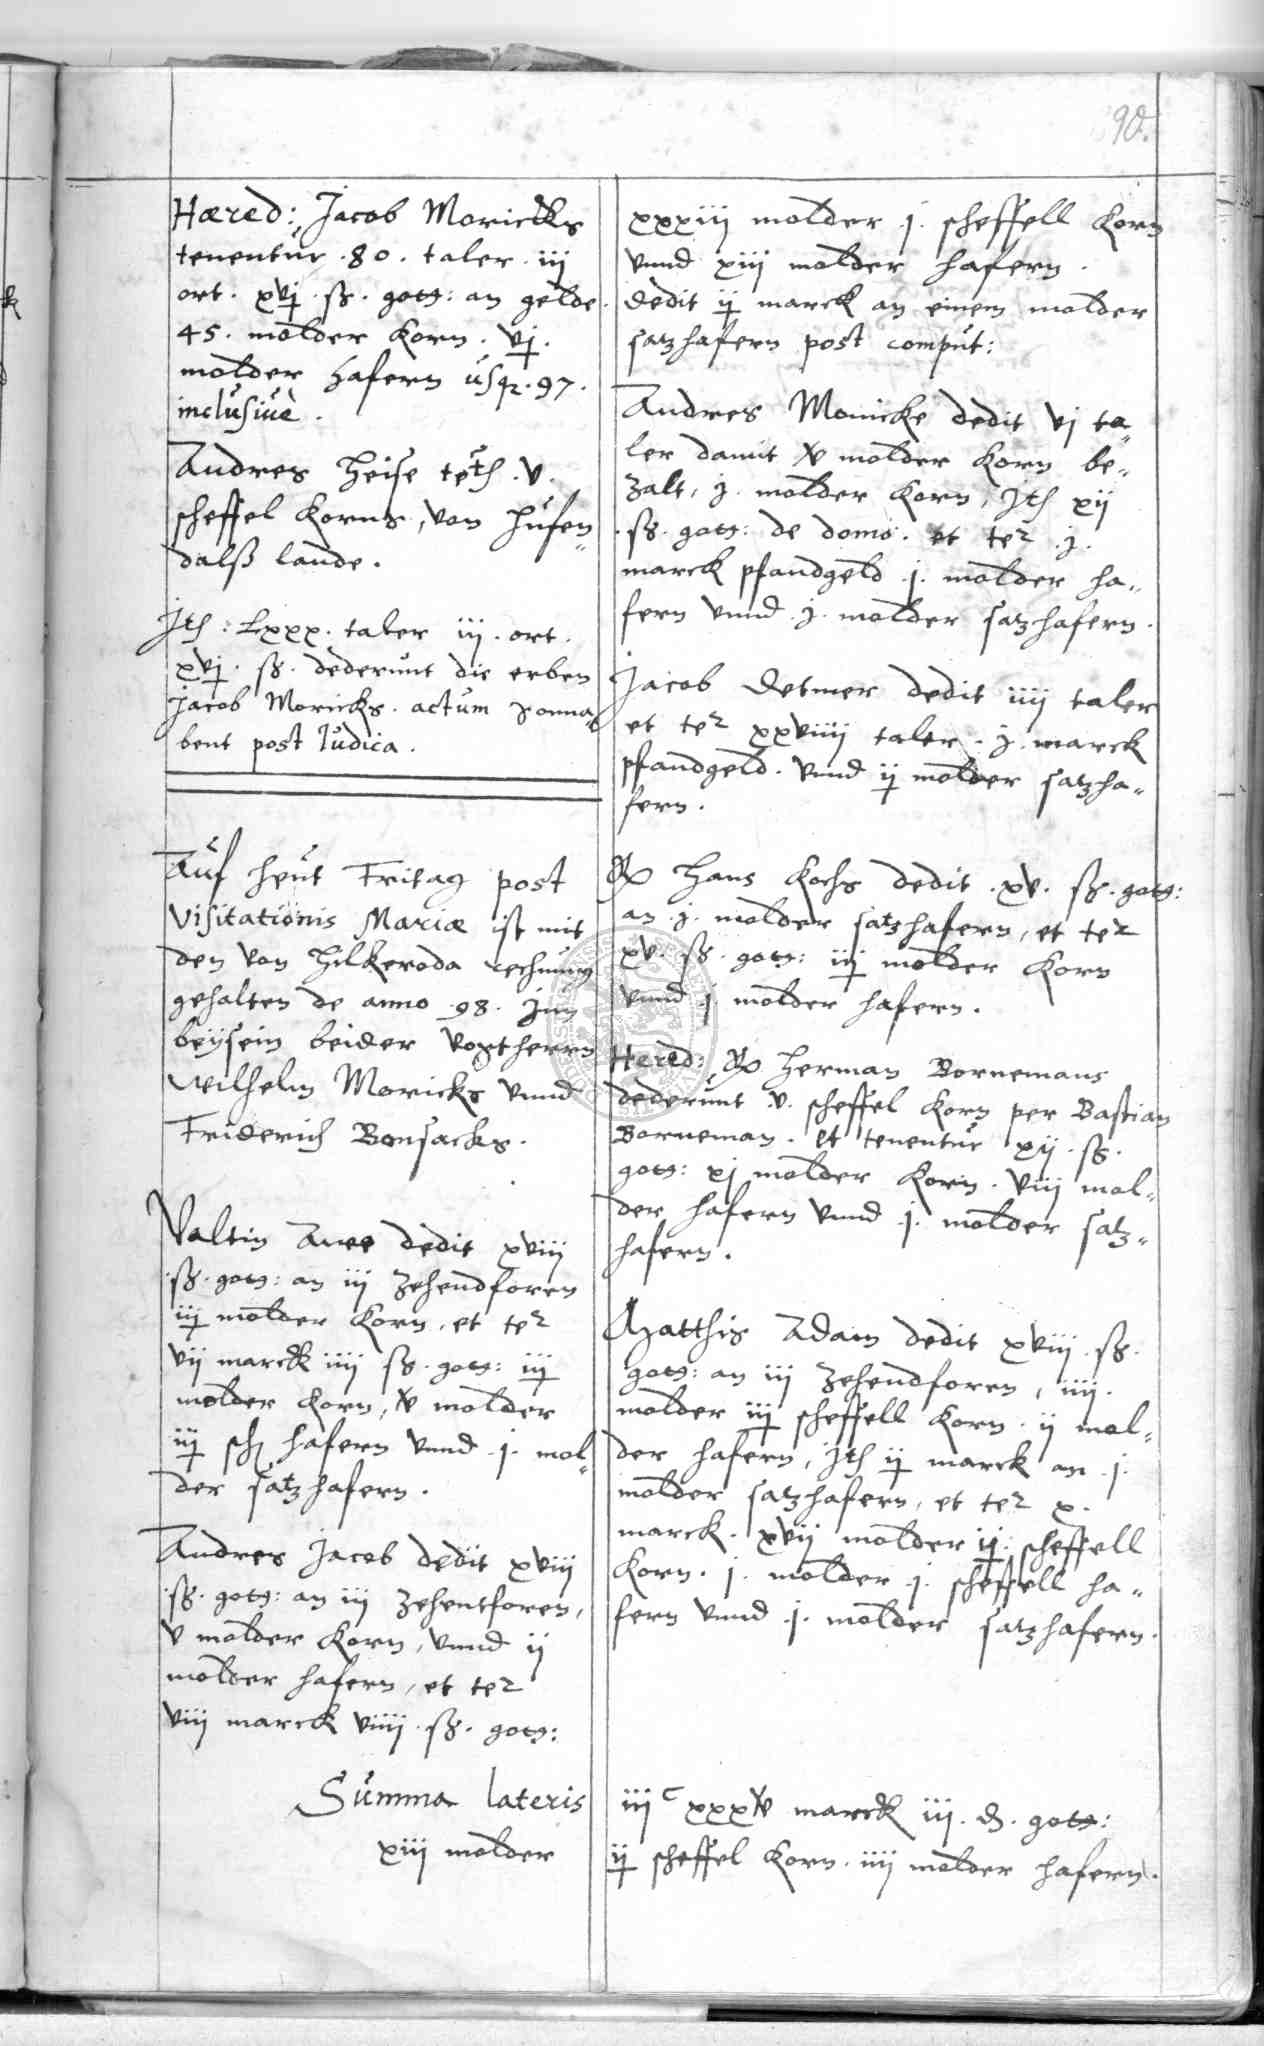 90.
Hæred: Jacob Moricks
tenentur .80. taler iij
ort. xvj. ß. gots: an gelde.
45. molder Korn. vj.
molder hafern usq. 97.
inclusiuè.
Andres Heise teth .v.
scheffel Korns, von Hufen„
dalß lande.
Jth: Lxxx. taler iij. ort.
xvj. ß. dederunt die erben
Jacob Moricks. actum sonna„
bent post Judica.
Auf heut Fritag post
Visitationis Mariæ ist mit
den von Hilkeroda rechnung
gehalten de anno .98. Jnn
beÿsein beider vogtherrn
Wilhelm Moricks vnnd
Friderich Bonsacks.
Valtin Aree dedit xviij
ß. gots: an iij Zehendforen
iij molder Korn, et ter
vij marck iiij ß. gots: iij
molder Korn, v molder
iij sch hafern vnnd .j. mol„
der satzhafern.
Andres Jacob dedit xviij
ß. gots: an iij Zehentforen,
v molder Korn, vnnd ij
molder hafern, et ter
viij marck viiij ß. gots:
Summa lateris
xiij molder
xxxiij molder .j. scheffell Korn
vnnd xiij molder hafern.
dedit ij marck an einem molder
satzhafern post comput:
Andres Monicke dedit vj ta„
ler damit v molder Korn be„
zalt, j. molder Korn, Jth xij
ß. gots: de domo. et ter .j.
marck pfandgeld .j. molder ha„
fern vnnd .j. molder satzhafern.
Jacob Detmer dedit iiij taler
et ter xxviiij taler. j. marck
pfandgeld. vnnd ij molder satzha„
fern.
Hans Kochs dedit .xv. ß. gots:
an .j. molder satzhafern, et ter
xv. ß. gots: iij molder Korn
vnnd .j. molder hafern.
Hered: Herman Bornemans
dederunt .v. scheffel Korn per Bastian
Borneman. et tenentur xij. ß.
gots: xj molder Korn. viij mol„
der hafern vnnd .j. molder satz„
hafern.
Matthis Adam dedit xviij ß.
gots: an iij Zehendforen, iiij.
molder iij scheffell Korn. ij mol„
der hafern, Jth ij marck an .j.
molder satzhafern, et ter x.
marck. xvij molder ij scheffell
Korn. j. molder .j. scheffell ha„
fern vnnd .j. molder satzhafern.
iij c xxxv marck iij. ₰. gots:
ij scheffel Korn. iiij molder hafern.